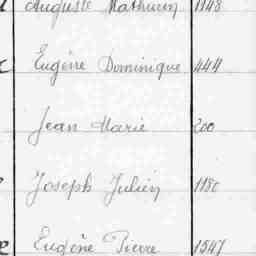 Auguste Mathurin 1148
Eugène Dominique 444
Jean Marie 200
Joseph Julien 1180
Eugène Pierre 1547